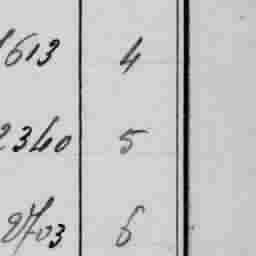 1613 4
2340 5
2703 6